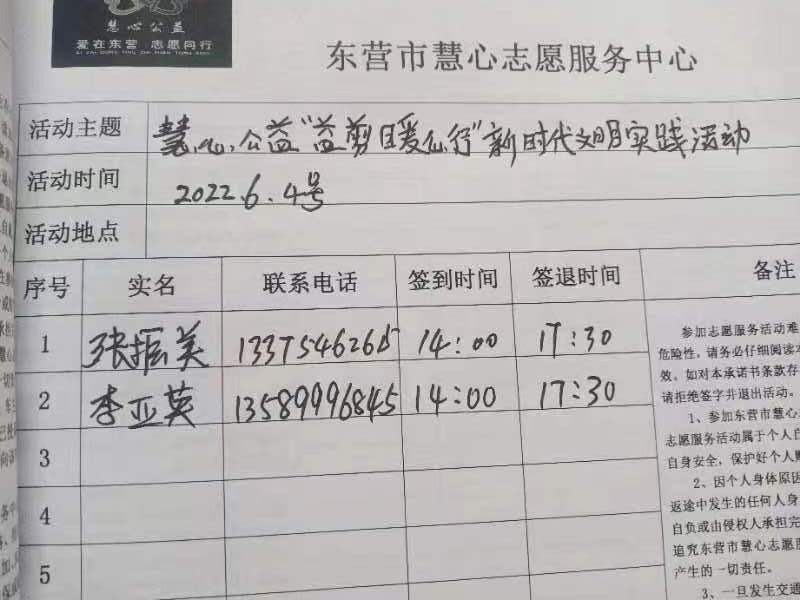 慧心公益
爱在东营 志愿同行
东营市慧心志愿服务中心
活动主题 慧心公益"益剪暖心行"新时代文明实践活动
活动时间 2022.6.4号
活动地点
序号 实名 联系电话 签到时间 签退时间 备注
1 张振美 14:00 17:30
2 李亚英 13589996845 14:00 17:30
3
4
5
参加志愿服务活动难
危险性,请务必仔细阅读本
效。如对本承诺书条款存
请拒绝签字并退出活动。
1、参加东营市慧心
志愿服务活动属于个人自
自身安全,保护好个人
2、因个人身体原因
返途中发生的任何人身
自负或由侵权人承担完
追究东营市慧心志愿
产生的一切责任。
3、一旦发生交通